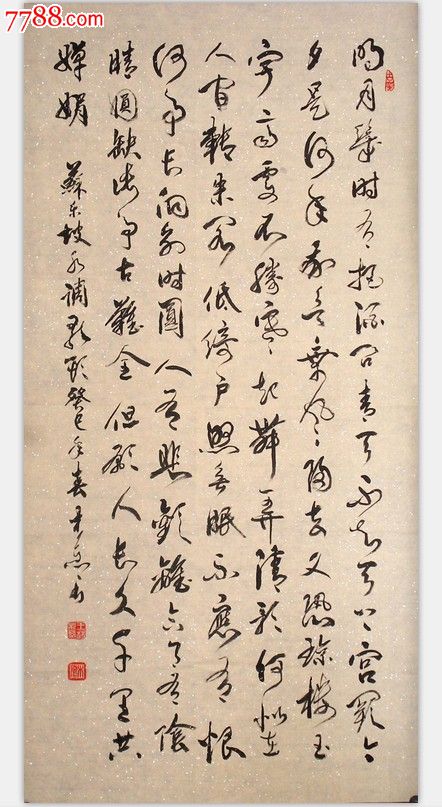 7788.com
明月幾時有把酒問青天不知天上宮闕今
夕是何年我欲乘風歸去又恐瓊樓玉
宇高處不勝寒起舞弄清影何似在
人間轉朱閣低綺戶照無眠不應有恨
何事長向別時圓人有悲歡離合月有陰
晴圓缺此事古難全但願人長久千里共
嬋娟
蘇東坡水調歌頭癸巳年春